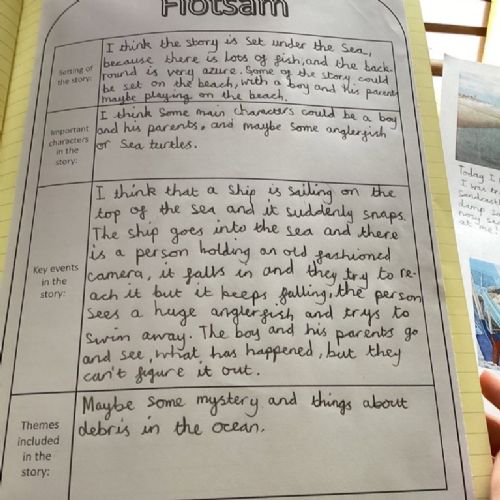 Flotsam
Setting of
the story:
I think the story is set under the sea,
because there is lots of fish, and the back-
round is very azure. Some of the story could
be set on the beach, with a boy and his parents
maybe playing on the beach.
Important
characters
in the
story:
I think some main characters could be a boy
and his parents, and maybe some anglerfish
or sea turtles.
Key events
in the
story:
I think that a ship is sailing on the
top of the sea and it suddenly snaps.
The ship goes into the sea and there
is a person holding an old fashioned
camera, it falls in and they try to re-
ach it but it keeps falling, the person
sees a huge anglerfish and trys to
swim away. The boy and his parents go
and see, what has happened, but they
can't figure it out.
Themes
included
in the
story:
Maybe some mystery and things about
debris in the ocean.
Today I
I was
Sandcastl
damp
nosy
at me!